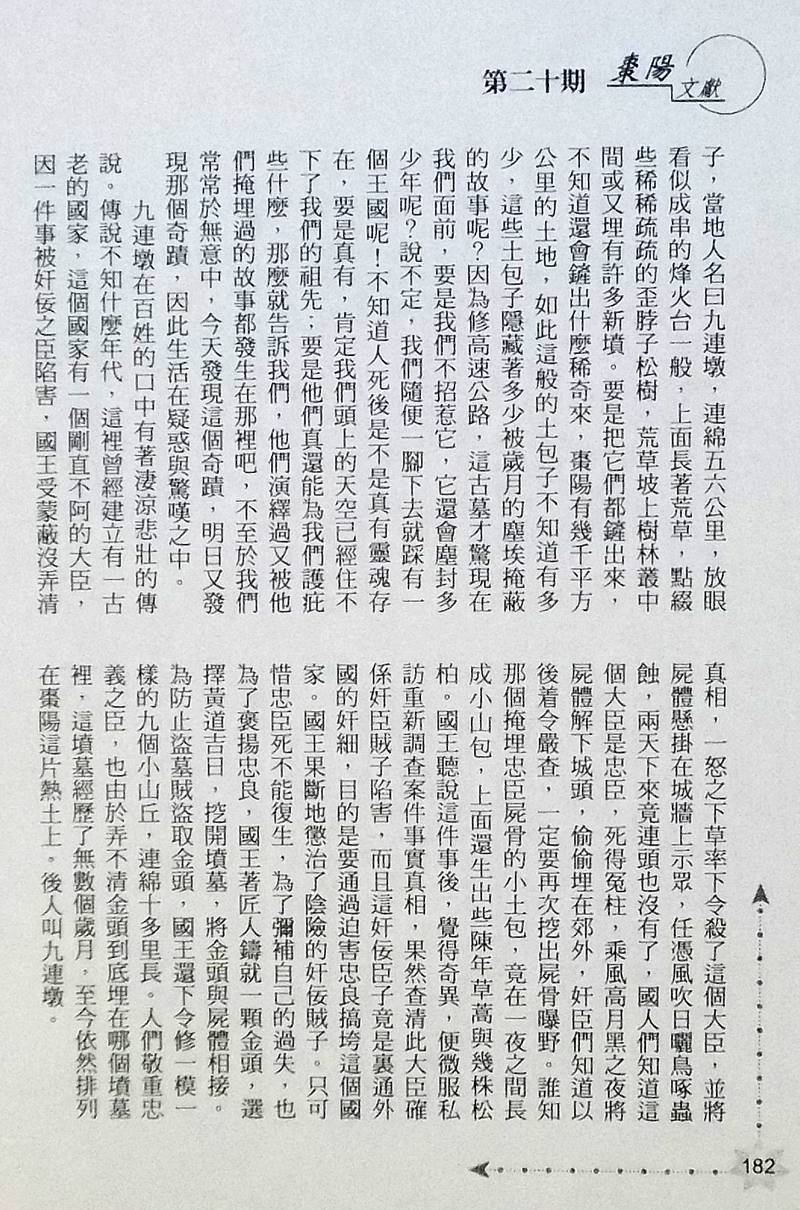 棗陽
文獻
第二十期
子，當地人名曰九連墩，連綿五六公里，放眼
看似成串的烽火台一般，上面長著荒草，點綴
些稀稀疏疏的歪脖子松樹，荒草坡上樹林叢中
間或又埋有許多新墳。要是把它們都鏟出來，
不知道還會鏟出什麼稀奇來，棗陽有幾千平方
公里的土地，如此這般的土包子不知道有多
少，這些土包子隱藏著多少被歲月的塵埃掩蔽
的故事呢？因為修高速公路，這古墓才驚現在
我們面前，要是我們不招惹它，它還會塵封多
少年呢？說不定，我們隨便一腳下去就踩有一
個王國呢！不知道人死後是不是真有靈魂存
在，要是真有，肯定我們頭上的天空已經住不
下了我們的祖先；要是他們真還能為我們護疪
些什麼，那麼就告訴我們，他們演繹過又被他
們掩埋過的故事都發生在那裡吧，不至於我們
常常於無意中，今天發現這個奇蹟，明日又發
現那個奇蹟，因此生活在疑惑與驚嘆之中。
九連墩在百姓的口中有著淒涼悲壯的傳
說。傳說不知什麼年代，這裡曾經建立有一古
老的國家，這個國家有一個剛直不阿的大臣，
因一件事被奸佞之臣陷害，國王受蒙蔽沒弄清
真相，一怒之下草率下令殺了這個大臣，並將
屍體懸掛在城牆上示眾，任憑風吹日曬鳥啄蟲
蝕，兩天下來竟連頭也沒有了，國人們知道這
個大臣是忠臣，死得冤枉，乘風高月黑之夜將
屍體解下城頭，偷偷埋在郊外，奸臣們知道以
後着令嚴查，一定要再次挖出屍骨曝野。誰知
那個掩埋忠臣屍骨的小土包，竟在一夜之間長
成小山包，上面還生出些陳年草蒿與幾株松
柏。國王聽說這件事後，覺得奇異，便微服私
訪重新調查案件事實真相，果然查清此大臣確
係奸臣賊子陷害，而且這奸佞臣子竟是裏通外
國的奸細，目的是要通過迫害忠良搞垮這個國
家。國王果斷地懲治了陰險的奸佞賊子。只可
惜忠臣死不能復生，為了彌補自己的過失，也
為了褒揚忠良，國王著匠人鑄就一顆金頭，選
擇黃道吉日，挖開墳墓，將金頭與屍體相接。
為防止盜墓賊盜取金頭，國王還下令修一模一
樣的九個小山丘，連綿十多里長。人們敬重忠
義之臣，也由於弄不清金頭到底埋在哪個墳墓
裡，這墳墓經歷了無數個歲月，至今依然排列
在棗陽這片熱土上。後人叫九連墩。
182